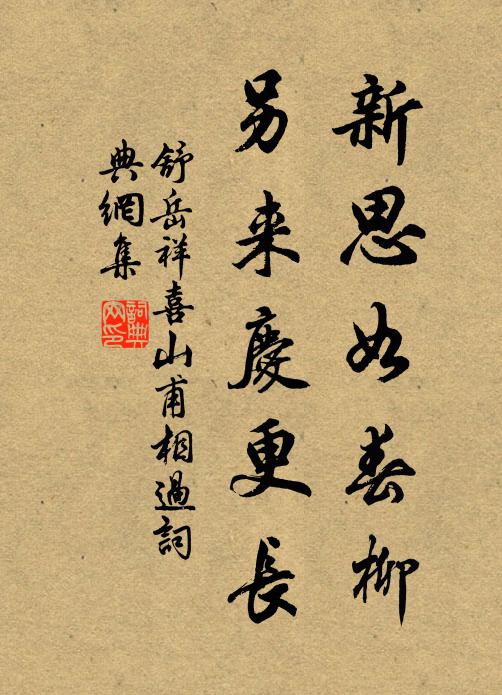 新思如春柳
另来慶更長
舒岳祥喜山甫相過詞
典網集
詞典
网印